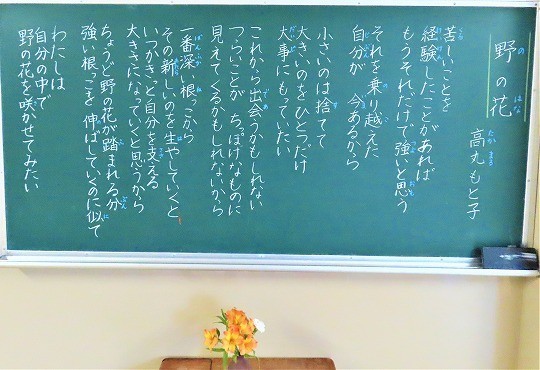 野の花
高丸もと子
苦しいことを
経験したことがあれば
もうそれだけで強いと思う
それを乗り越えた
自分が今あるから
小さいのは捨てて
大きいのをひとつだけ
大事にもっていたい
これから出会うかもしれない
つらいことがちっぽけなものに
見えてくるかもしれないから
一番深い根っこから
その新しいのを生やしていくと
いつかきっと自分を支える
大きさになっていくと思うから
ちょうど野の花が踏まれる分
強い根っこを伸ばしていくのに似て
わたしは
自分の中で
野の花を咲かせてみたい